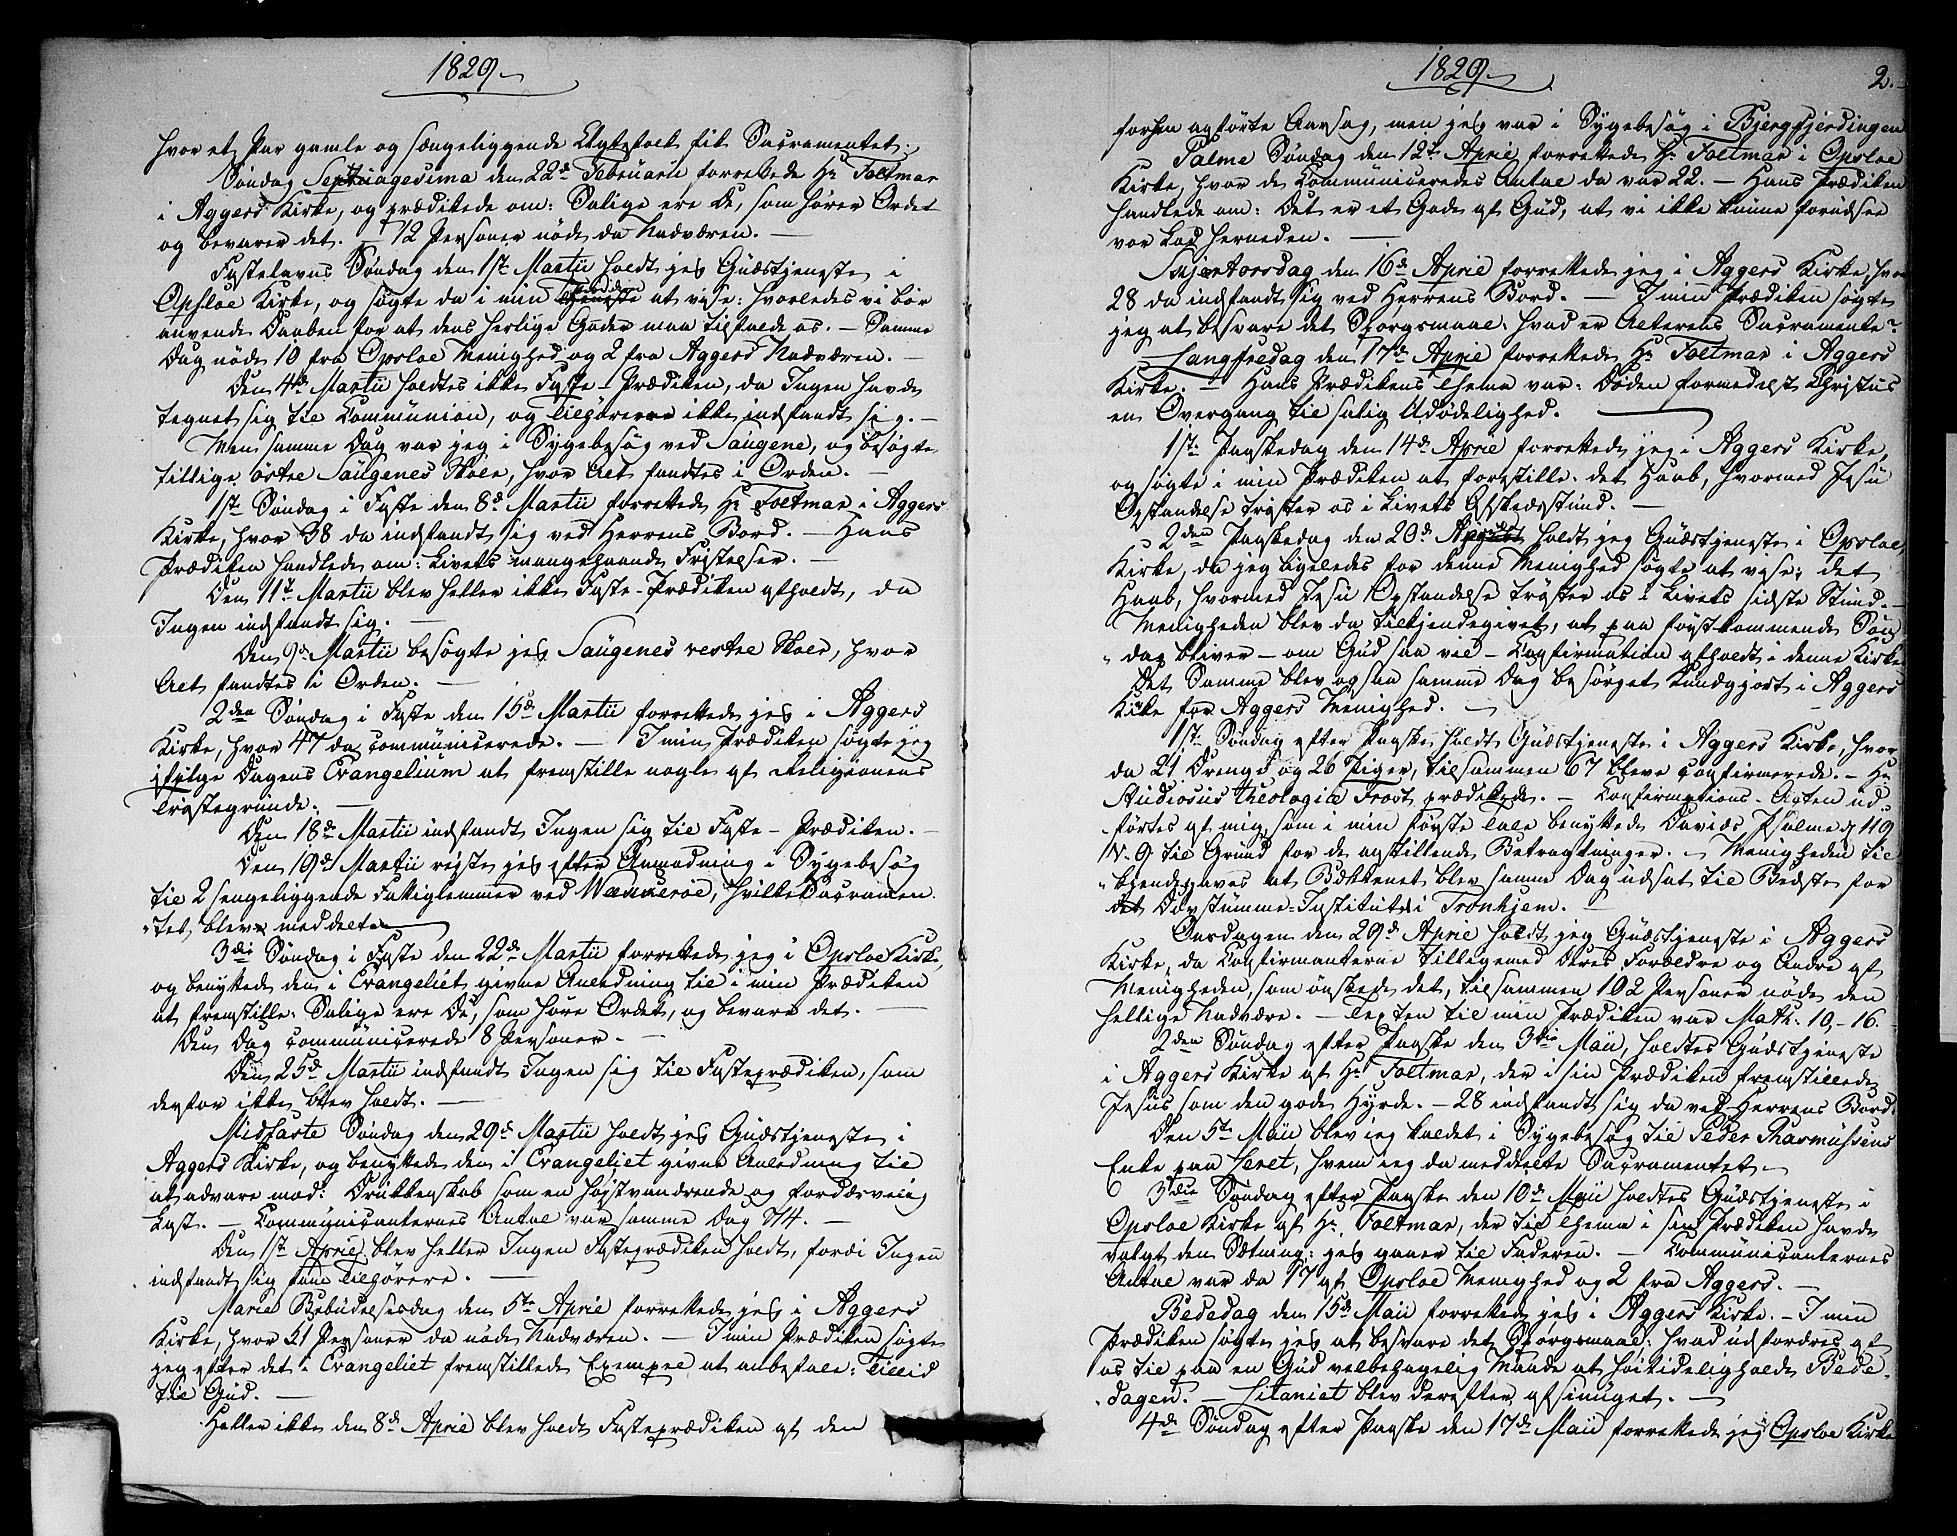 1829
hvor et Par gamle og sængeliggende Ægtefolk fik Sacramentet.
Søndag Septuagesima den 22d Februarii forrettede Hr Foltmar
i Aggers Kirke, og prædikede om: Salige ere De, som hører Ordet
og bevarer det. — 12 Personer nøde da Nadveren. —
Fastelavns Søndag den 1ste Martii holdt jeg Gudstjeneste i
Opsloe Kirke, og søgte da i min Prædiken at vise: hvorledes vi bør
anvende Daaben for at dens herlige Goder maa tilfalde os. — Samme
Dag nøde 10 fra Opsloe Menighed og 2 fra Aggers Nadveren. —
Den 4de Martii holdtes ikke Faste-Prædiken, da Ingen havde
tegnet sig til Communion, og Tilhørere ikke indfandt sig. —
Men samme Dag var jeg i Sygebesøg ved Saugene, og besøgte
tillige østre Saugenes Skole, hvor Alt fandtes i Orden. —
1ste Søndag i Faste den 8d Martii forrettede Hr Foltmar i Aggers
Kirke, hvor 38 da indfandt sig ved Herrens Bord. — Hans
Prædiken handlede om: Livets mangehaande Fristelser. —
Den 11te Martii blev heller ikke Faste-Prædiken afholdt, da
Ingen indfandt sig. —
Den 9de Martii besøgte jeg Saugenes vestre Skole, hvor
Alt fandtes i Orden. —
2den Søndag i Faste den 15d Martii forrettede jeg i Aggers
Kirke, hvor 47 da communicerede. — I min Prædiken søgte jeg
ifølge Dagens Evangelium at fremstille nogle af Religionens
Trøstegrunde. —
Den 18de Martii indfandt Ingen sig til Faste-Prædiken. —
Den 19d Martii reiste jeg efter Anmodning i Sygebesøg
til 2 sengeliggende Fattiglemmer ved Wækkerøe, hvilke Sacramen-
tet blev meddelt.
3die Søndag i Faste den 22de Martii forrettede jeg i Opsloe Kirke,
og benyttede den i Evangeliet givne Anledning til i min Prædiken
at fremstille: Salige ere De, som høre Ordet, og bevare det. —
Den Dag communicerede 8 Personer. —
Den 25d Martii indfandt Ingen sig til Fasteprædiken, som
derfor ikke blev holdt. —
Midfaste Søndag den 29d Martii holdt jeg Gudstjeneste i
Aggers Kirke, og benyttede den i Evangeliet givne Anledning til
at advare mod: Drukkenskab som en høistvanærende og fordærvelig
Last. — Communicanternes Antal var samme Dag 74. —
Den 1ste April blev heller Ingen Fasteprædiken holdt, fordi Ingen
indfandt sig som Tilhørere. —
Mariæ Bebudelsesdag den 5te April forrettede jeg i Aggers
Kirke, hvor 51 Personer da nøde Nadveren. — I min Prædiken søgte
jeg efter det i Evangeliet fremstillede Exempel at anbefale: Tillid
til Gud. —
Heller ikke den 8d April blev holdt Fasteprædiken af den
1829
2.
forhen anførte Aarsag, men jeg var i Sygebesøg i Bjergfjerdingen
Palme Søndag den 12te April forrettede Hr Foltmar i Opsloe
Kirke, hvor de Communiceredes Antal da var 22. — Hans Prædiken
handlede om: Det er et Gode af Gud, at vi ikke kunne forudsee
vor Lod herneden. —
Skjærtorsdag den 16de April forrettede jeg i Aggers Kirke, hvor
28 da indfandt sig ved Herrens Bord. — I min Prædiken søgte
jeg at besvare det Spørgsmaal: hvad er Alterens Sacramente?
Langfredag den 17de April forrettede Hr Foltmar i Aggers
Kirke. — Hans Prædikens Thema var: Døden formedelst Christus
en Overgang til salig Udødelighed. —
1ste Paaskedag den 14de April forrettede jeg i Aggers Kirke,
og søgte i min Prædiken at forestille: det Haab, hvormed Jesu
Opstandelse trøster os i Livets Afskedsstund. —
2den Paaskedag den 20d April holdt jeg Gudstjeneste i Opsloe
Kirke, da jeg ligeledes for denne Menighed søgte at vise: det
Haab, hvormed Jesu Opstandelse trøster os i Livets sidste Stund. —
Menigheden blev da tilkjendegivet, at paa førstkommende Søn-
dag bliver — om Gud saa vil — Confirmation afholdt i denne Kirke.
Det Samme blev ogsaa samme Dag besørget kundgjort i Aggers
Kirke for Aggers Menighed. —
1ste Søndag efter Paaske holdt Gudstjeneste i Aggers Kirke, hvor
da 21 Drenge og 26 Piger, tilsammen 67 bleve confirmerede. — Hr
Studiosus Theologiæ Frost prædikede. — Confirmations-Acten ud-
førtes af mig, som i min første Tale benyttede Davids Psalme 119
V. 9 til Grund for de anstillende Betragtninger. — Menigheden til-
kjendegaves at Bækkenet blev samme Dag udsat til Bedste for
det Døvstumme-Institut i Tronhjem. —
Onsdagen den 29d April holdt jeg Gudstjeneste i Aggers
Kirke, da Confirmanterne tilligemed deres Forældre og Andre af
Menigheden, som ønskede det, tilsammen 102 Personer nøde den
hellige Nadvere. — Texten til min Prædiken var Math: 10,-16.
2den Søndag efter Paaske den 3die Maii, holdtes Gudstjeneste
i Aggers Kirke af Hr Foltmar, der i sin Prædiken fremstillede
Jesus som den gode Hyrde. — 28 indfandt sig da ved Herrens Bord.
Den 5te Maii blev jeg kaldet i Sygebesøg til Peder Rasmussens
Enke paa Leret, hvem jeg da meddelte Sacramentet. —
3die Søndag efter Paaske den 10d Maii holdtes Gudstjeneste i
Opsloe Kirke af Hr Foltmar, der til Thema i sin Prædiken havde
valgt den Sætning: jeg gaaer til Faderen. — Communicanternes
Antal var da 17 af Opsloe Menighed og 2 fra Aggers. —
Bededag den 15d Maii forrettede jeg i Aggers Kirke. — I min
Prædiken søgte jeg at besvare det Spørgsmaal: hvad udfordres af
os til paa en Gud velbehagelig Maade at høitideligholde Bede-
dagen. — Litaniet blev derefter afsunget. —
4de Søndag efter Paaske den 17de Maii forrettede jeg i Opsloe Kirke